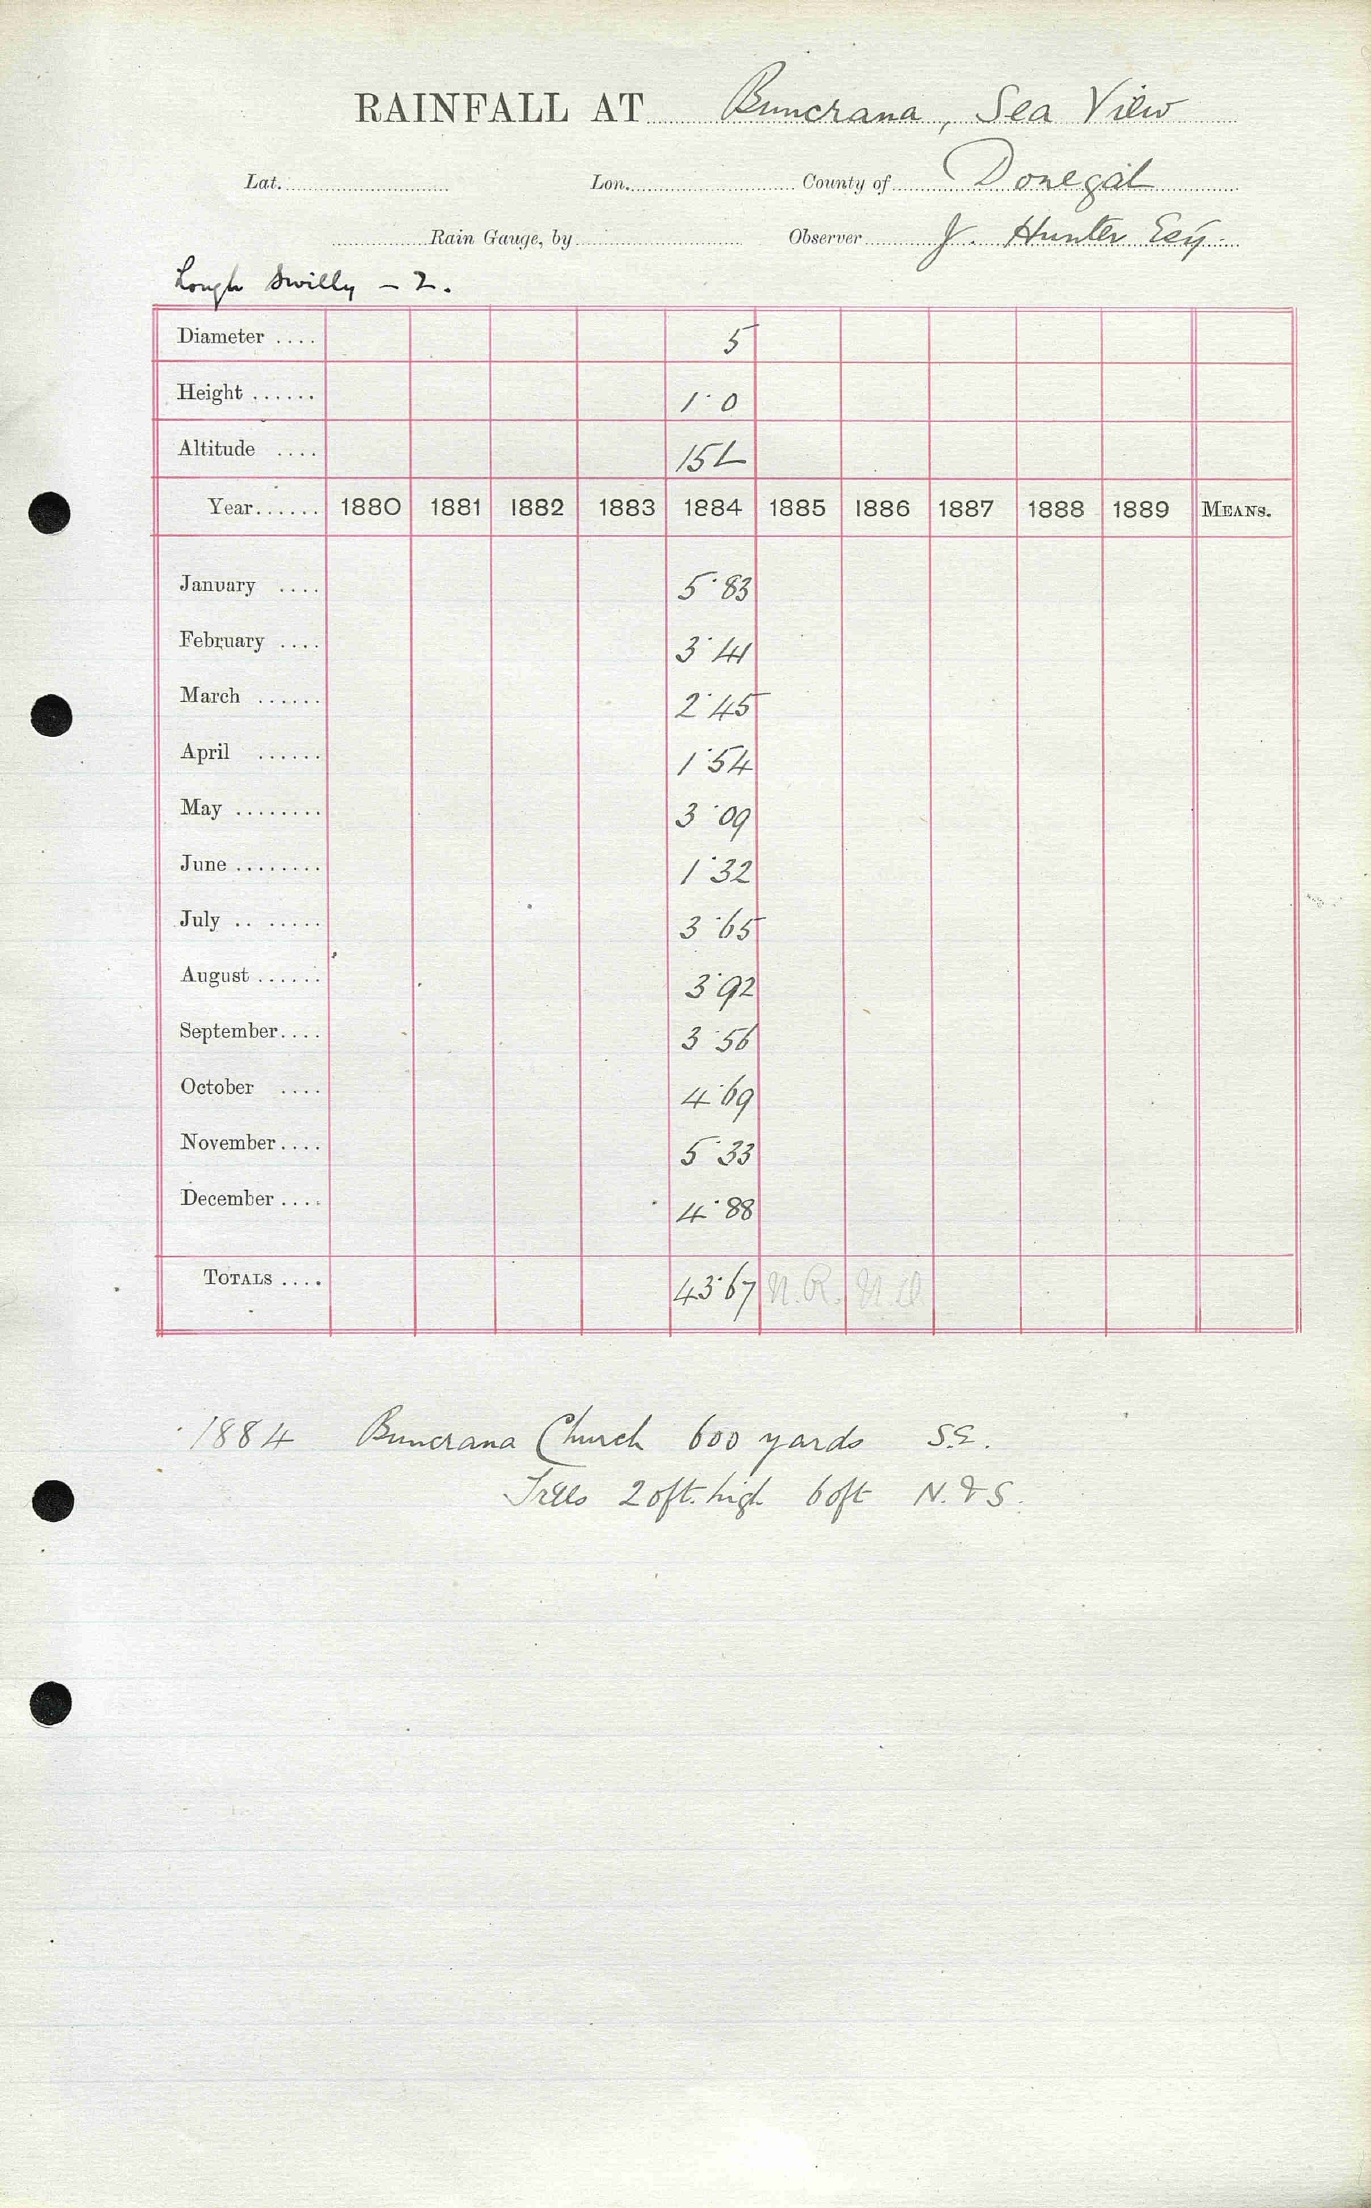 RAINFALL AT Buncrana, Sea View
Lat. Lon. County of Donegal
Rain Gauge, by Observer J. Hunter Esq.
Lough Swilly - 2.
Diameter .... 5
Height ...... 1·0
Altitude ....
Year...... 1880 1881 1882 1883 1884 1885 1886 1887 1888 1889 MEANS.
January .... 5·83
February .... 3·41
March ...... 2·45
April ...... 1·54
May ........ 3·09
June ........ 1·32
July .. ...... 3·65
August ...... 3·92
September.... 3·56
October .... 4·69
November.... 5·33
December .... 4·88
TOTALS .... 43·67 N.R.
1884 Buncrana Church 600 yards S.E.
Trees 20ft. high 60ft N. & S.